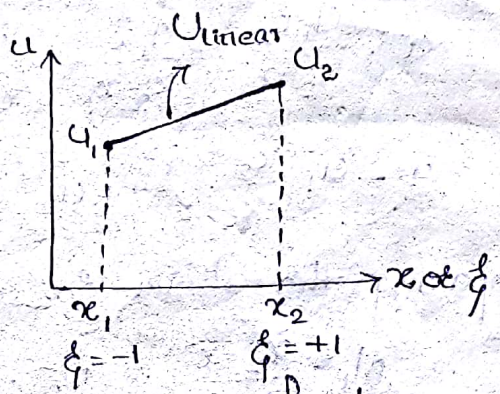 U linear
u
u₂
u₁
x or ξ
x₁ x₂
ξ = -1 ξ = +1